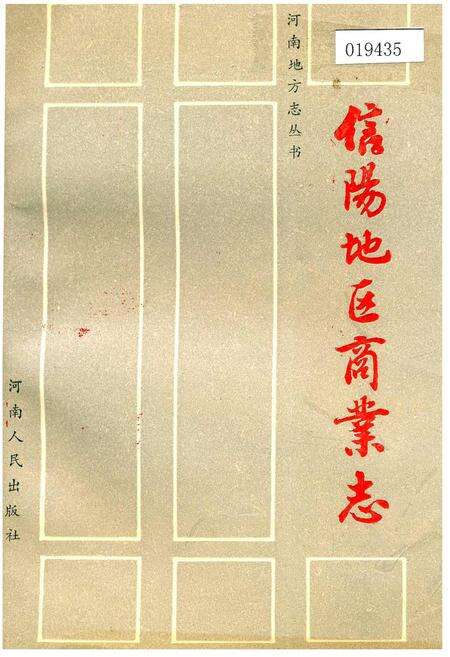 019435
信陽地区商業志
河南地方志丛书
河南人民出版社